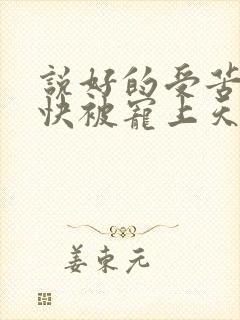 説好的受苦
快被寵上天
姜東元